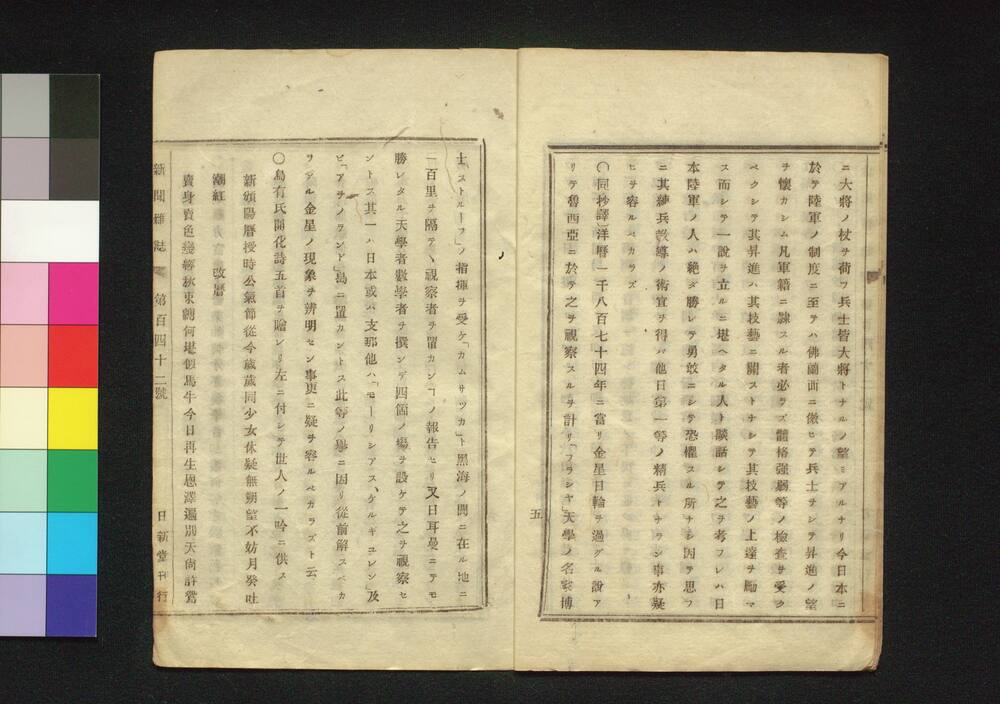 ニ大將ノ杖ヲ荷フ兵士皆大將トナルノ望ミアルナリ今日本ニ
於テ陸軍ノ制度ニ至テハ佛蘭西ニ倣ヒテ兵士ヲシテ昇進ノ望
ヲ懷カシム凡軍籍ニ隷スル者必ラズ體格強弱等ノ檢査ヲ受ク
ベクシテ其昇進ハ其技藝ニ關ストナシテ其技藝ノ上達ヲ勵マ
ス而シテ一說ヲ立ルニ堪ヘタル人ト談話シテ之ヲ考フレハ日
本陸軍ノ人ハ絶ダ勝レテ勇敢ニシテ恐懼スル所ナシ因テ思フ
ニ其練兵敎導ノ術宜ヲ得バ他日第一等ノ精兵トナラン事亦疑
ヒヲ容ルベカラズ
〇同抄譯)洋曆一千八百七十四年ニ當リ金星日輪ヲ過グル說ア
リテ魯西亞ニ於テ之ヲ視察スルヲ計リ「フラシヤ」天學ノ名家博
五
士「ストルーフ」ノ指揮ヲ受ケ「カムサツカ」ト黑海ノ間ニ在ル地ニ
一百里ヲ隔テヽ視察者ヲ置カンヿノ報告セリ又日耳曼ニテモ
勝レタル天學者數學者ヲ撰ンデ四箇ノ場ヲ設ケテ之ヲ視察セ
ントス其一ハ日本或ハ支那他ハ「モーリシアス、ケルギユレン」及
ビ「アヲノランド」島ニ置カントス此等ノ擧ニ因リ從前解スベカ
ヲアル金星ノ現象ヲ辨明セン事更ニ疑ヲ容ルベカラズト云
〇鳥有氏開化詩五首ヲ贈レリ左ニ付シテ世人ノ一吟ニ供ス
新頒陽曆授時公氣節從今歲歲同少女休疑無朔望不妨月癸吐
潮紅 改曆
賣身賣色幾經秋束縛何堪似馬牛今日再生恩澤遍別天尙許鴛
新聞雜誌 第百四十二號 日新堂刊行